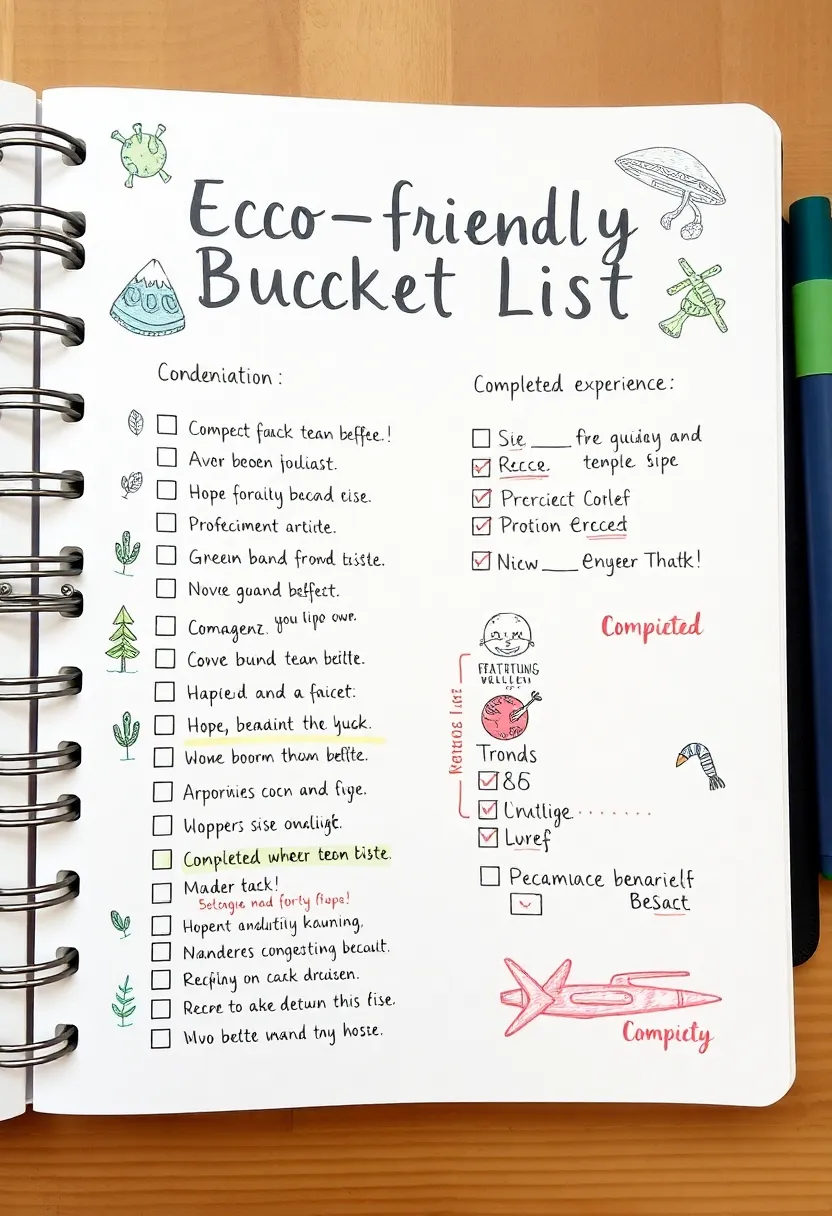 Ecco-friendly
Buccket List
Condeniation:
Compect fauck tean beffee.!
Aver beoen jouliast.
Hope forailly becad eise.
Profeciment articte.
Green band frond tiste.
Novie guand beffect.
Comagenz. you lipo owe.
Cowe bund tean beitte.
Hapied and a faicet:
Hope, beadint the yuck.
Wowe boorm tham beffte.
Arporivies cocn and fige.
Woppers sise
Completed wheer teon biste.
Mader tack!
Selcagie nad forty flopa!
Hopent kauning.
Nanderes congesting becault.
on cack druisen.
Recre to ake detwn this fise.
bette wand tny hoste.
Completed experience:
Sie ____ fre guiday and
Recce. temple Sipe
Prcrciect Corlef
Protion Ercced
Nicw ___ Enyeer Thatk!
Compicted
Tronds
86
Luref
Pecamiace benarielf
Besact
Compicty